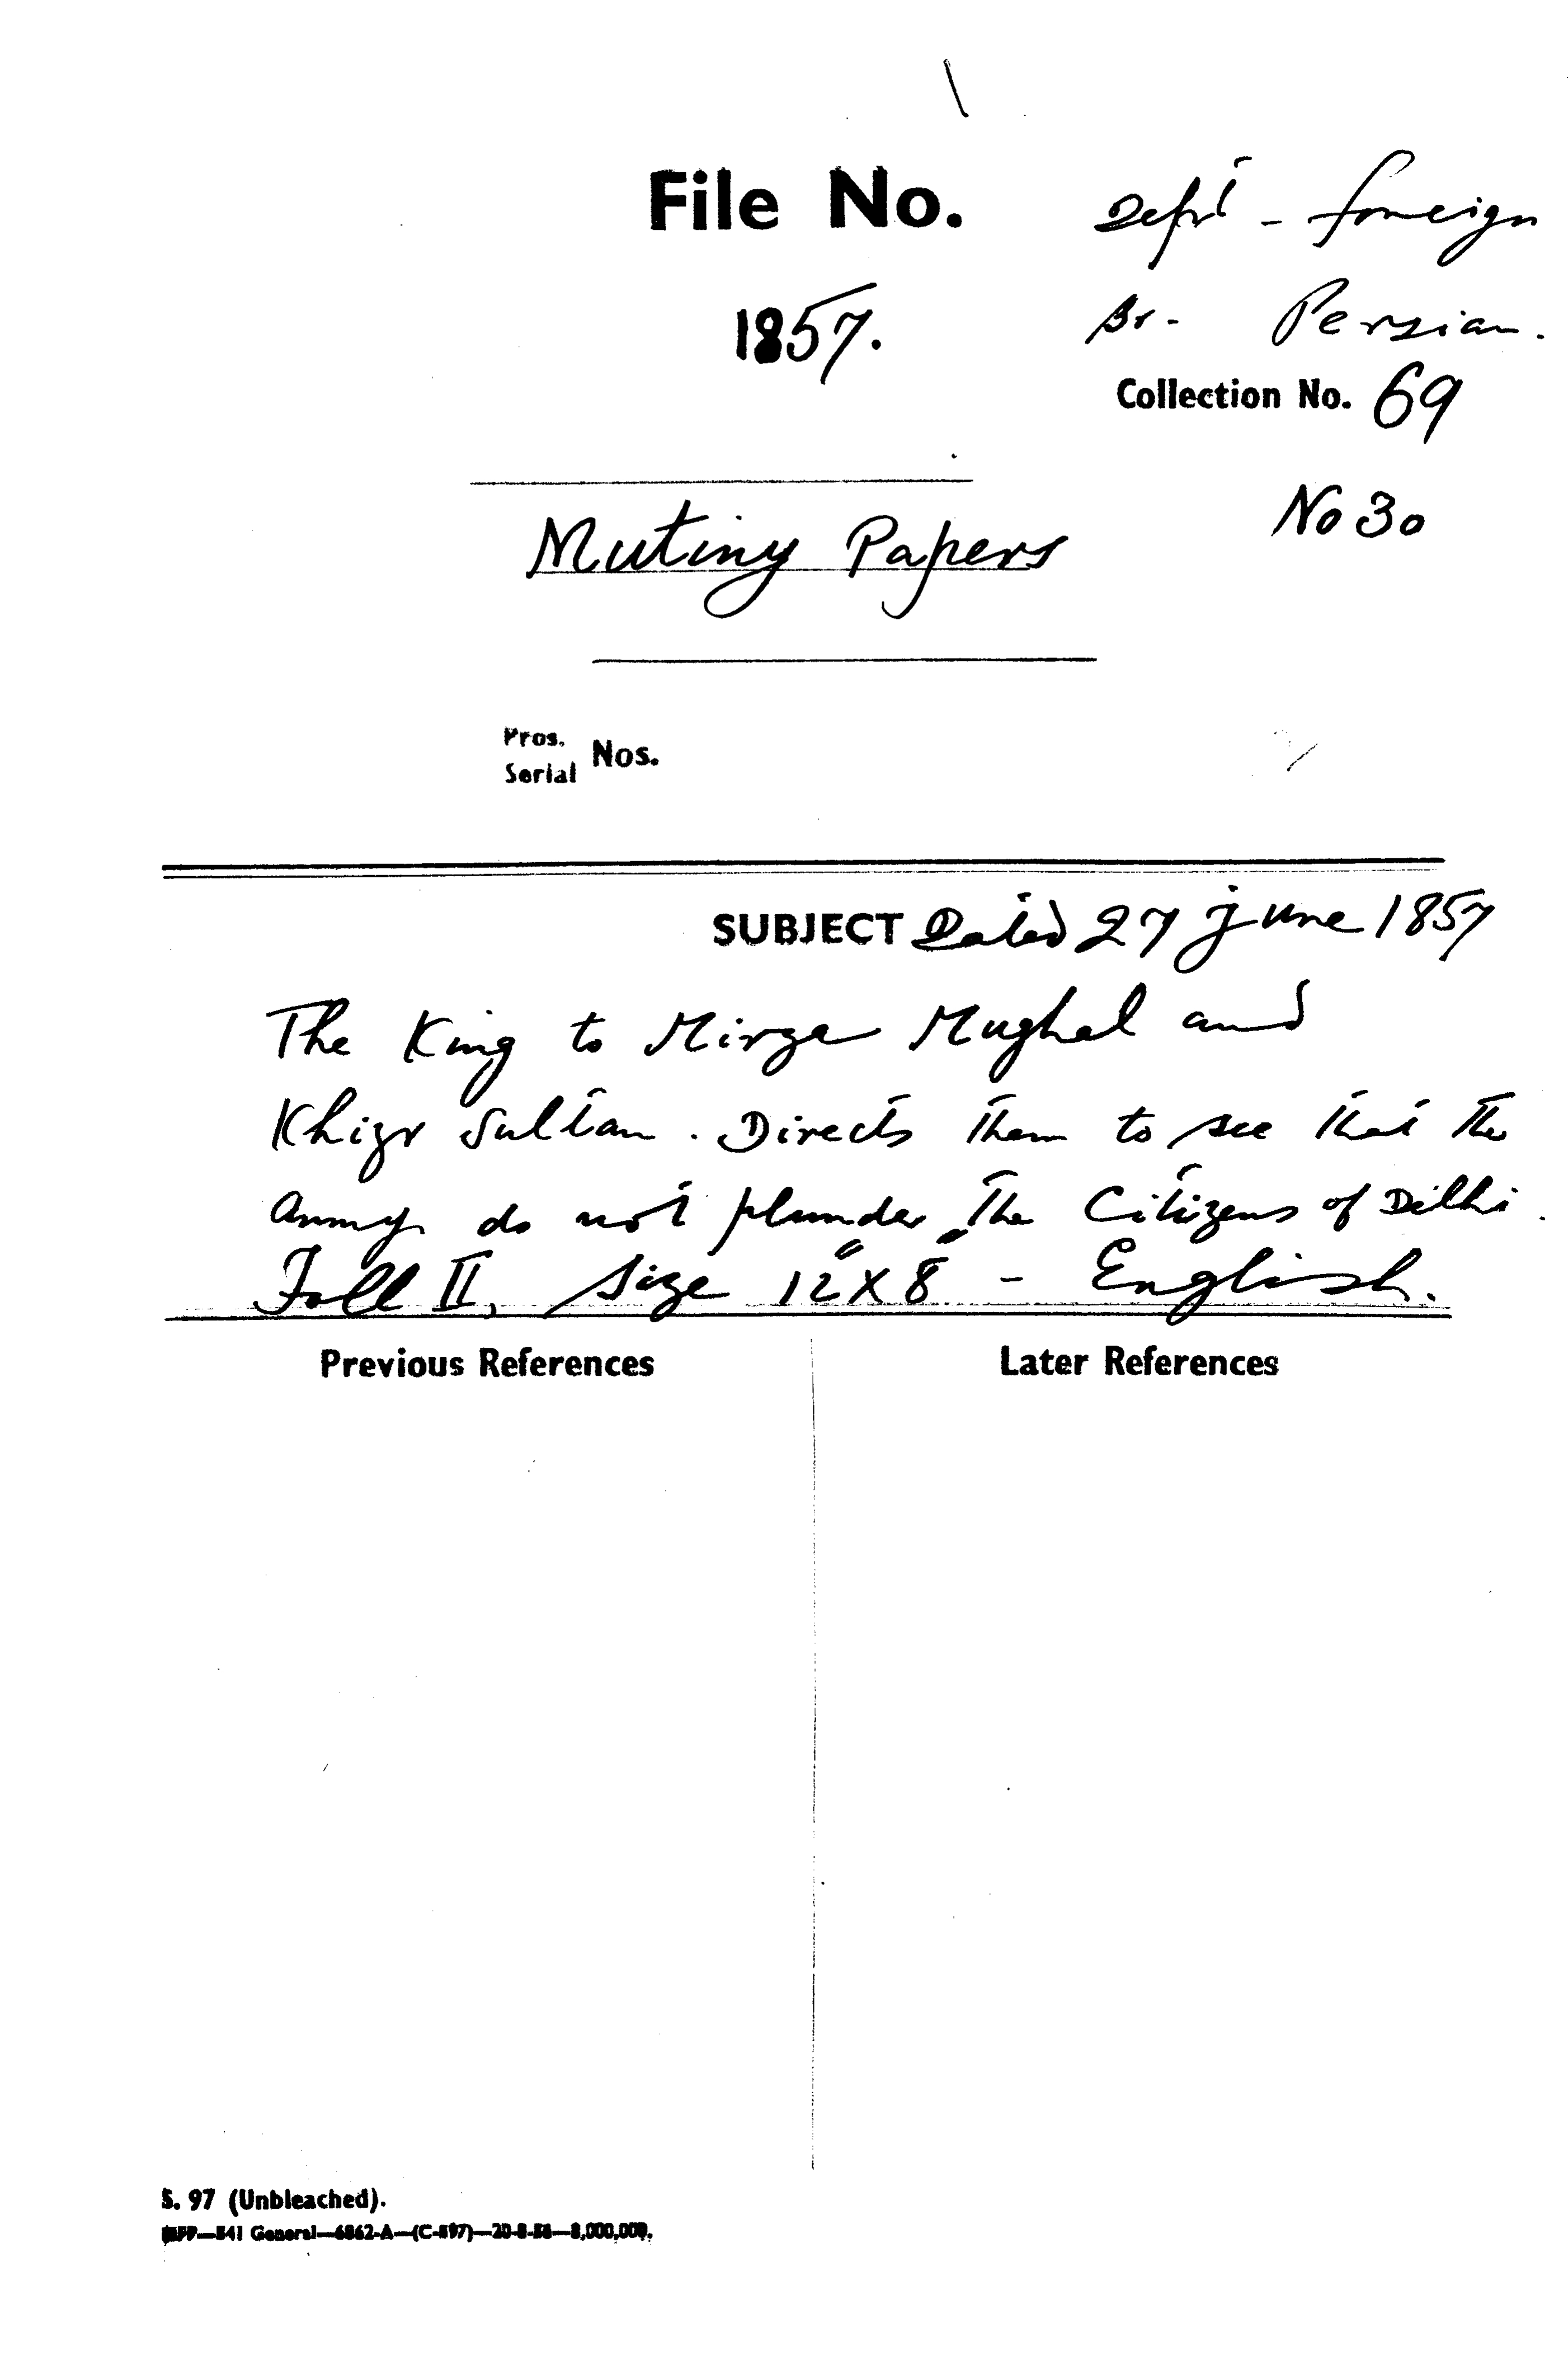 File No.
Deptt - foreign
1857.
Br- Persian.
Collection No. 69
No 30
Mutiny Papers
Pros.
Serial Nos.
SUBJECT Dated 27 June 1857
The King to Mirza Mughal and
Khizr Sultan. Directs them to see that the
army do not plunder the Citizens of Dilhi.
Foll II, Size 12"X8" - English.
Previous References
Later References
S. 97 (Unbleached).
General—6862-A—(C-597)—20-8-58—8,000,000.